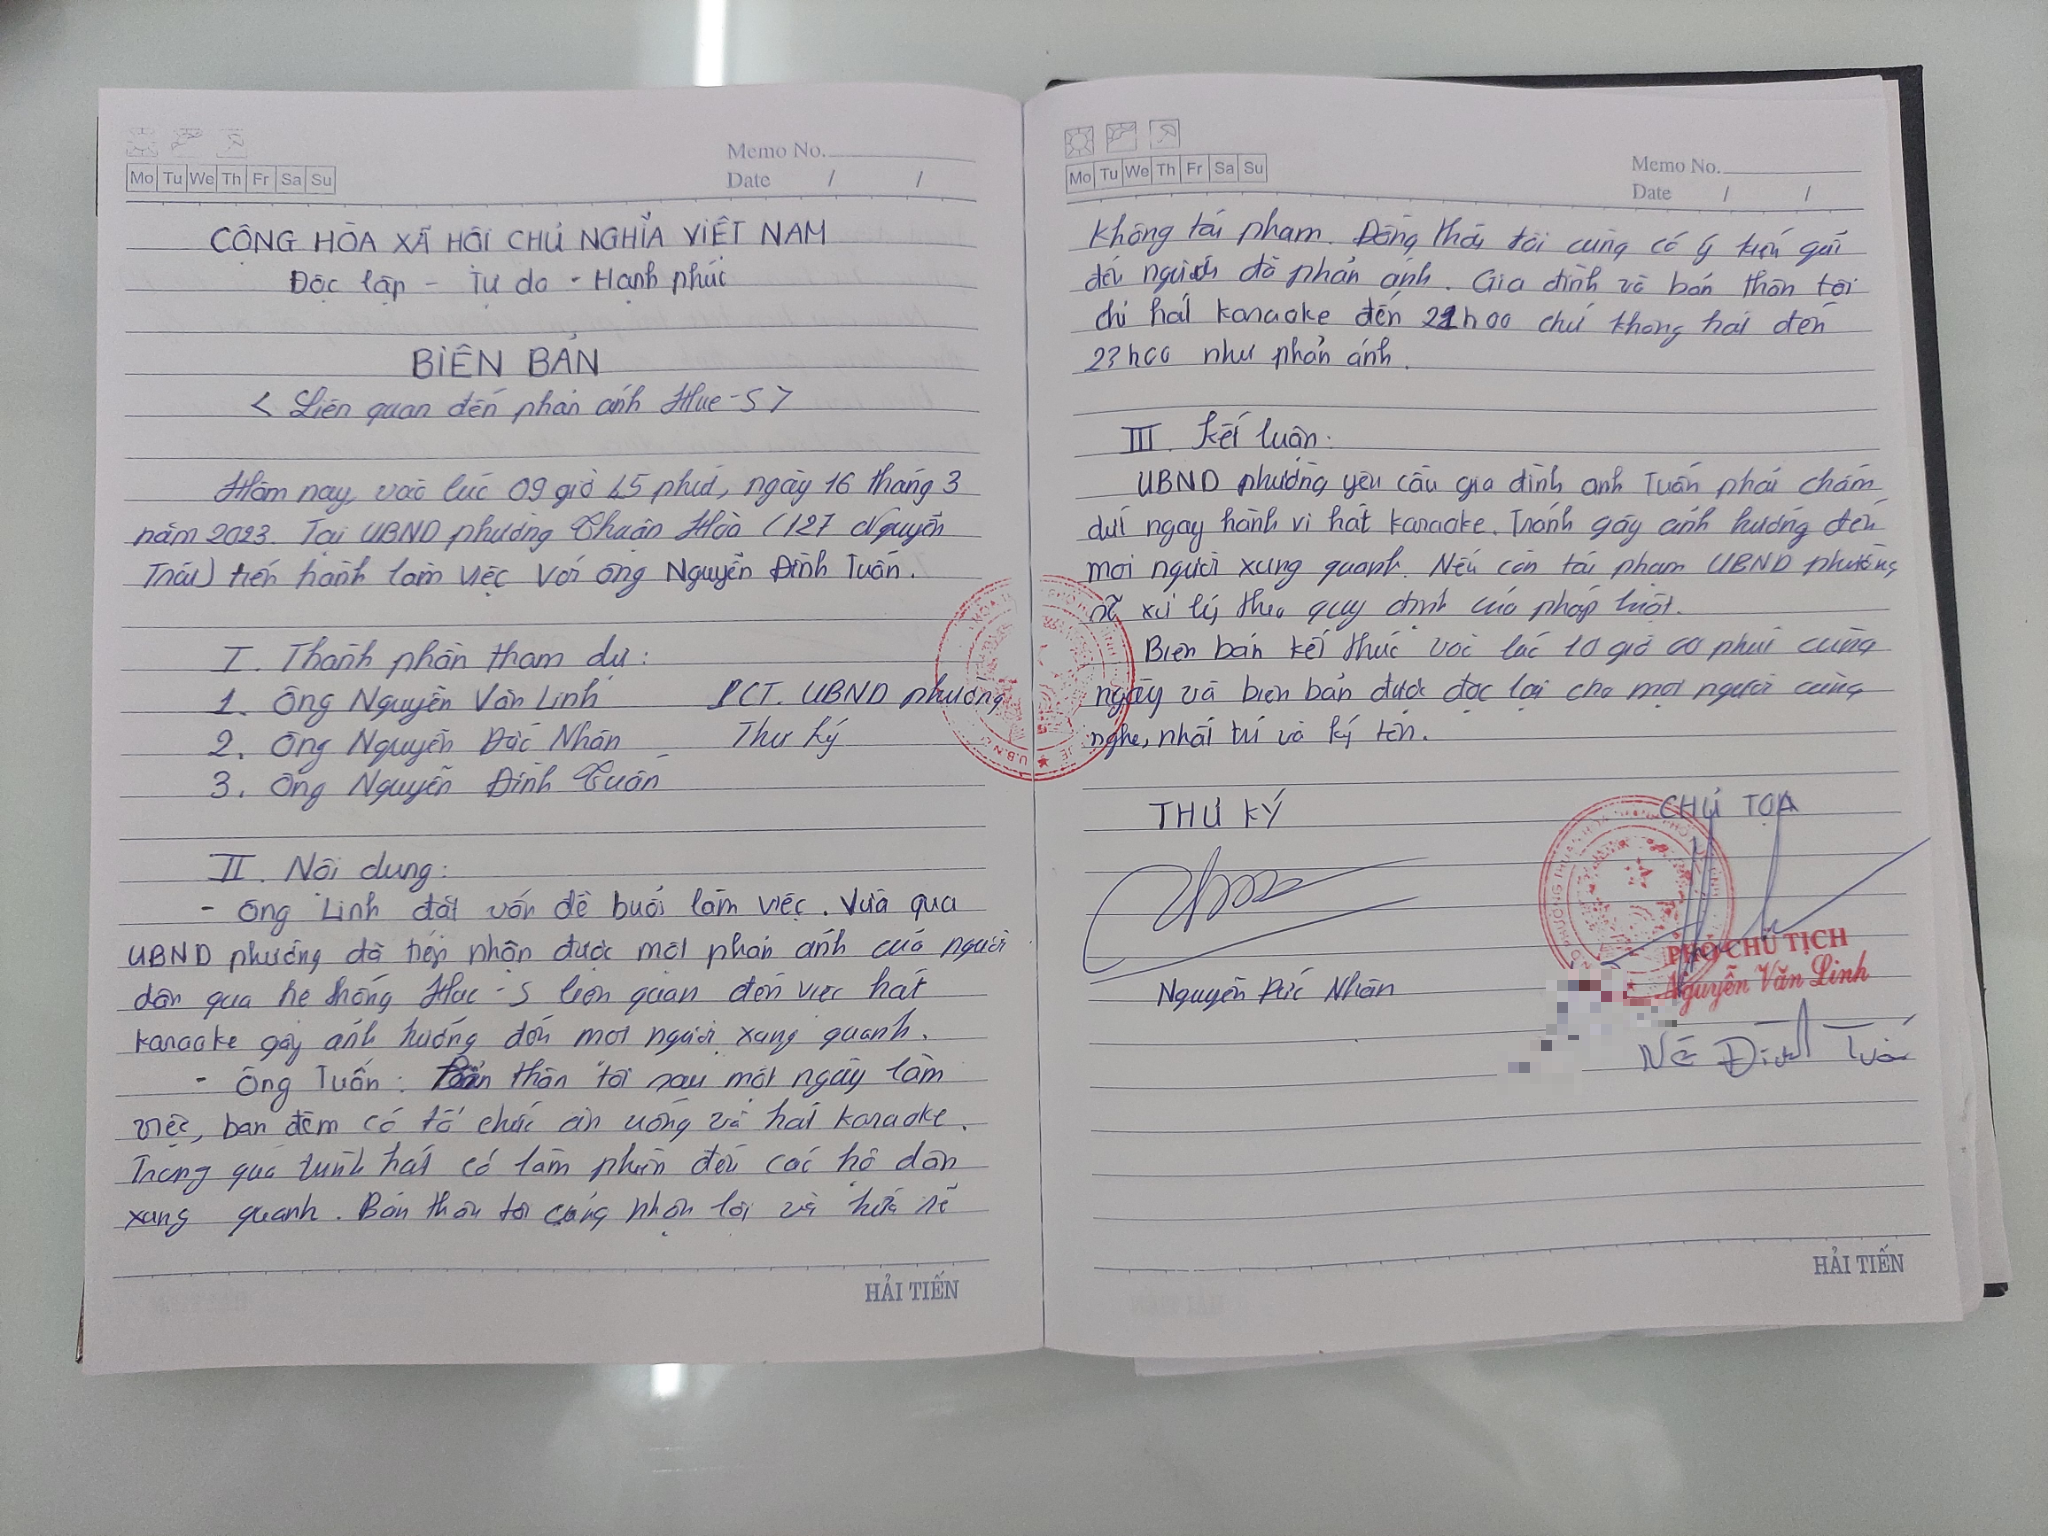 Memo No.
Mo Tu We Th Fr Sa Su
Date / /
CỘNG HÒA XÃ HỘI CHỦ NGHĨA VIỆT NAM
Độc lập - Tự do - Hạnh phúc
BIÊN BẢN
< Liên quan đến phản ánh Hue-S >
Hôm nay, vào lúc 09 giờ 15 phút, ngày 16 tháng 3
năm 2023. Tại UBND phường Thuận Hòa (127 Nguyễn
Trãi) tiến hành làm việc với ông Nguyễn Đình Tuấn.
I. Thành phần tham dự:
1. Ông Nguyễn Văn Linh PCT. UBND phường
2. Ông Nguyễn Đức Nhân Thư ký
3. Ông Nguyễn Đình Tuấn
II. Nội dung:
- Ông Linh đặt vấn đề buổi làm việc. Vừa qua
UBND phường đã tiếp nhận được một phản ánh của người
dân qua hệ thống Hue-S liên quan đến việc hát
karaoke gây ảnh hưởng đến mọi người xung quanh.
- Ông Tuấn: Bản thân tôi sau một ngày làm
việc, ban đêm có tổ chức ăn uống và hát karaoke.
Trong quá trình hát có làm phiền đến các hộ dân
xung quanh. Bản thân tôi cũng nhận lỗi và hứa sẽ
HẢI TIẾN
Memo No.
Mo Tu We Th Fr Sa Su
Date / /
không tái phạm. Đồng thời tôi cũng có ý kiến gửi
đến người đã phản ánh. Gia đình và bản thân tôi
chỉ hát karaoke đến 21h00 chứ không hát đến
23h00 như phản ánh.
III. Kết luận:
UBND phường yêu cầu gia đình anh Tuấn phải chấm
dứt ngay hành vi hát karaoke. Tránh gây ảnh hưởng đến
mọi người xung quanh. Nếu còn tái phạm UBND phường
sẽ xử lý theo quy định của pháp luật.
Biên bản kết thúc vào lúc 10 giờ 00 phút cùng
ngày và biên bản được đọc lại cho mọi người cùng
nghe, nhất trí và ký tên.
THƯ KÝ CHỦ TỌA
PHÓ CHỦ TỊCH
Nguyễn Văn Linh
Nguyễn Đức Nhân
Đình Tuấn
HẢI TIẾN